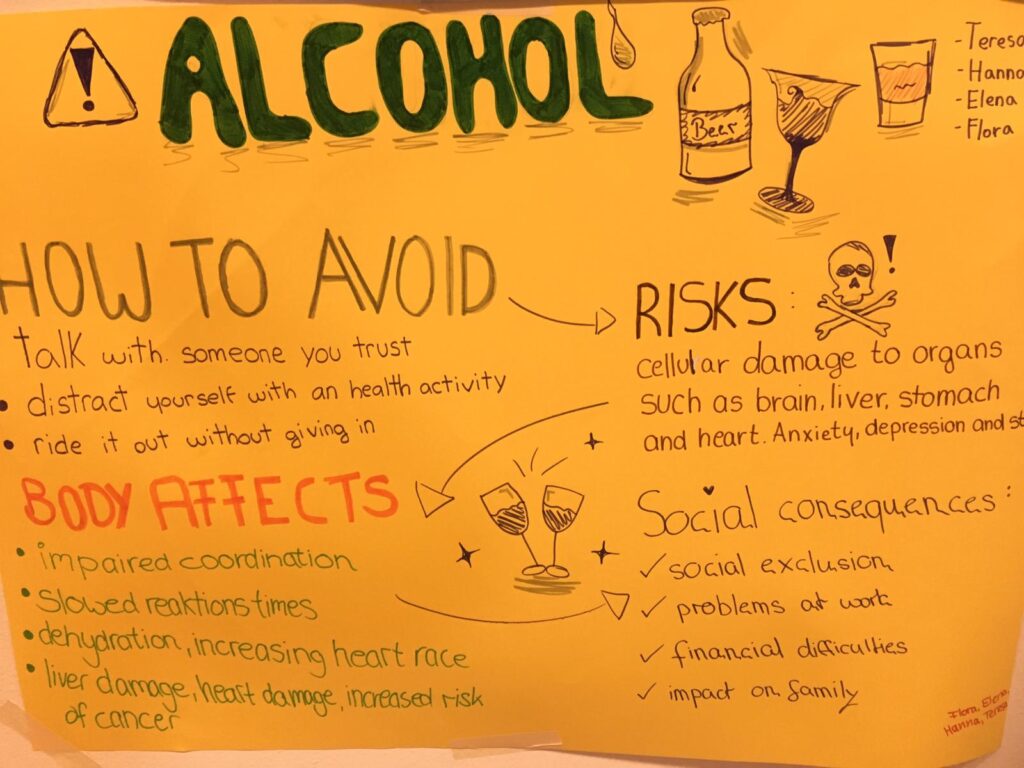 ALCOHOL
Beer
- Teresa
- Hanna
- Elena
- Flora
HOW TO AVOID
talk with someone you trust
• distract yourself with an health activity
• ride it out without giving in
RISKS :
cellular damage to organs
such as brain, liver, stomach
and heart. Anxiety, depression and
BODY AFFECTS
• impaired coordination
• Slowed reaktions times
• dehydration, increasing heart race
• liver damage, heart damage, increased risk
of cancer
Social consequences :
✓ social exclusion
✓ problems at work
✓ financial difficulties
✓ impact on family
Flora, Elena,
Hanna, Teresa